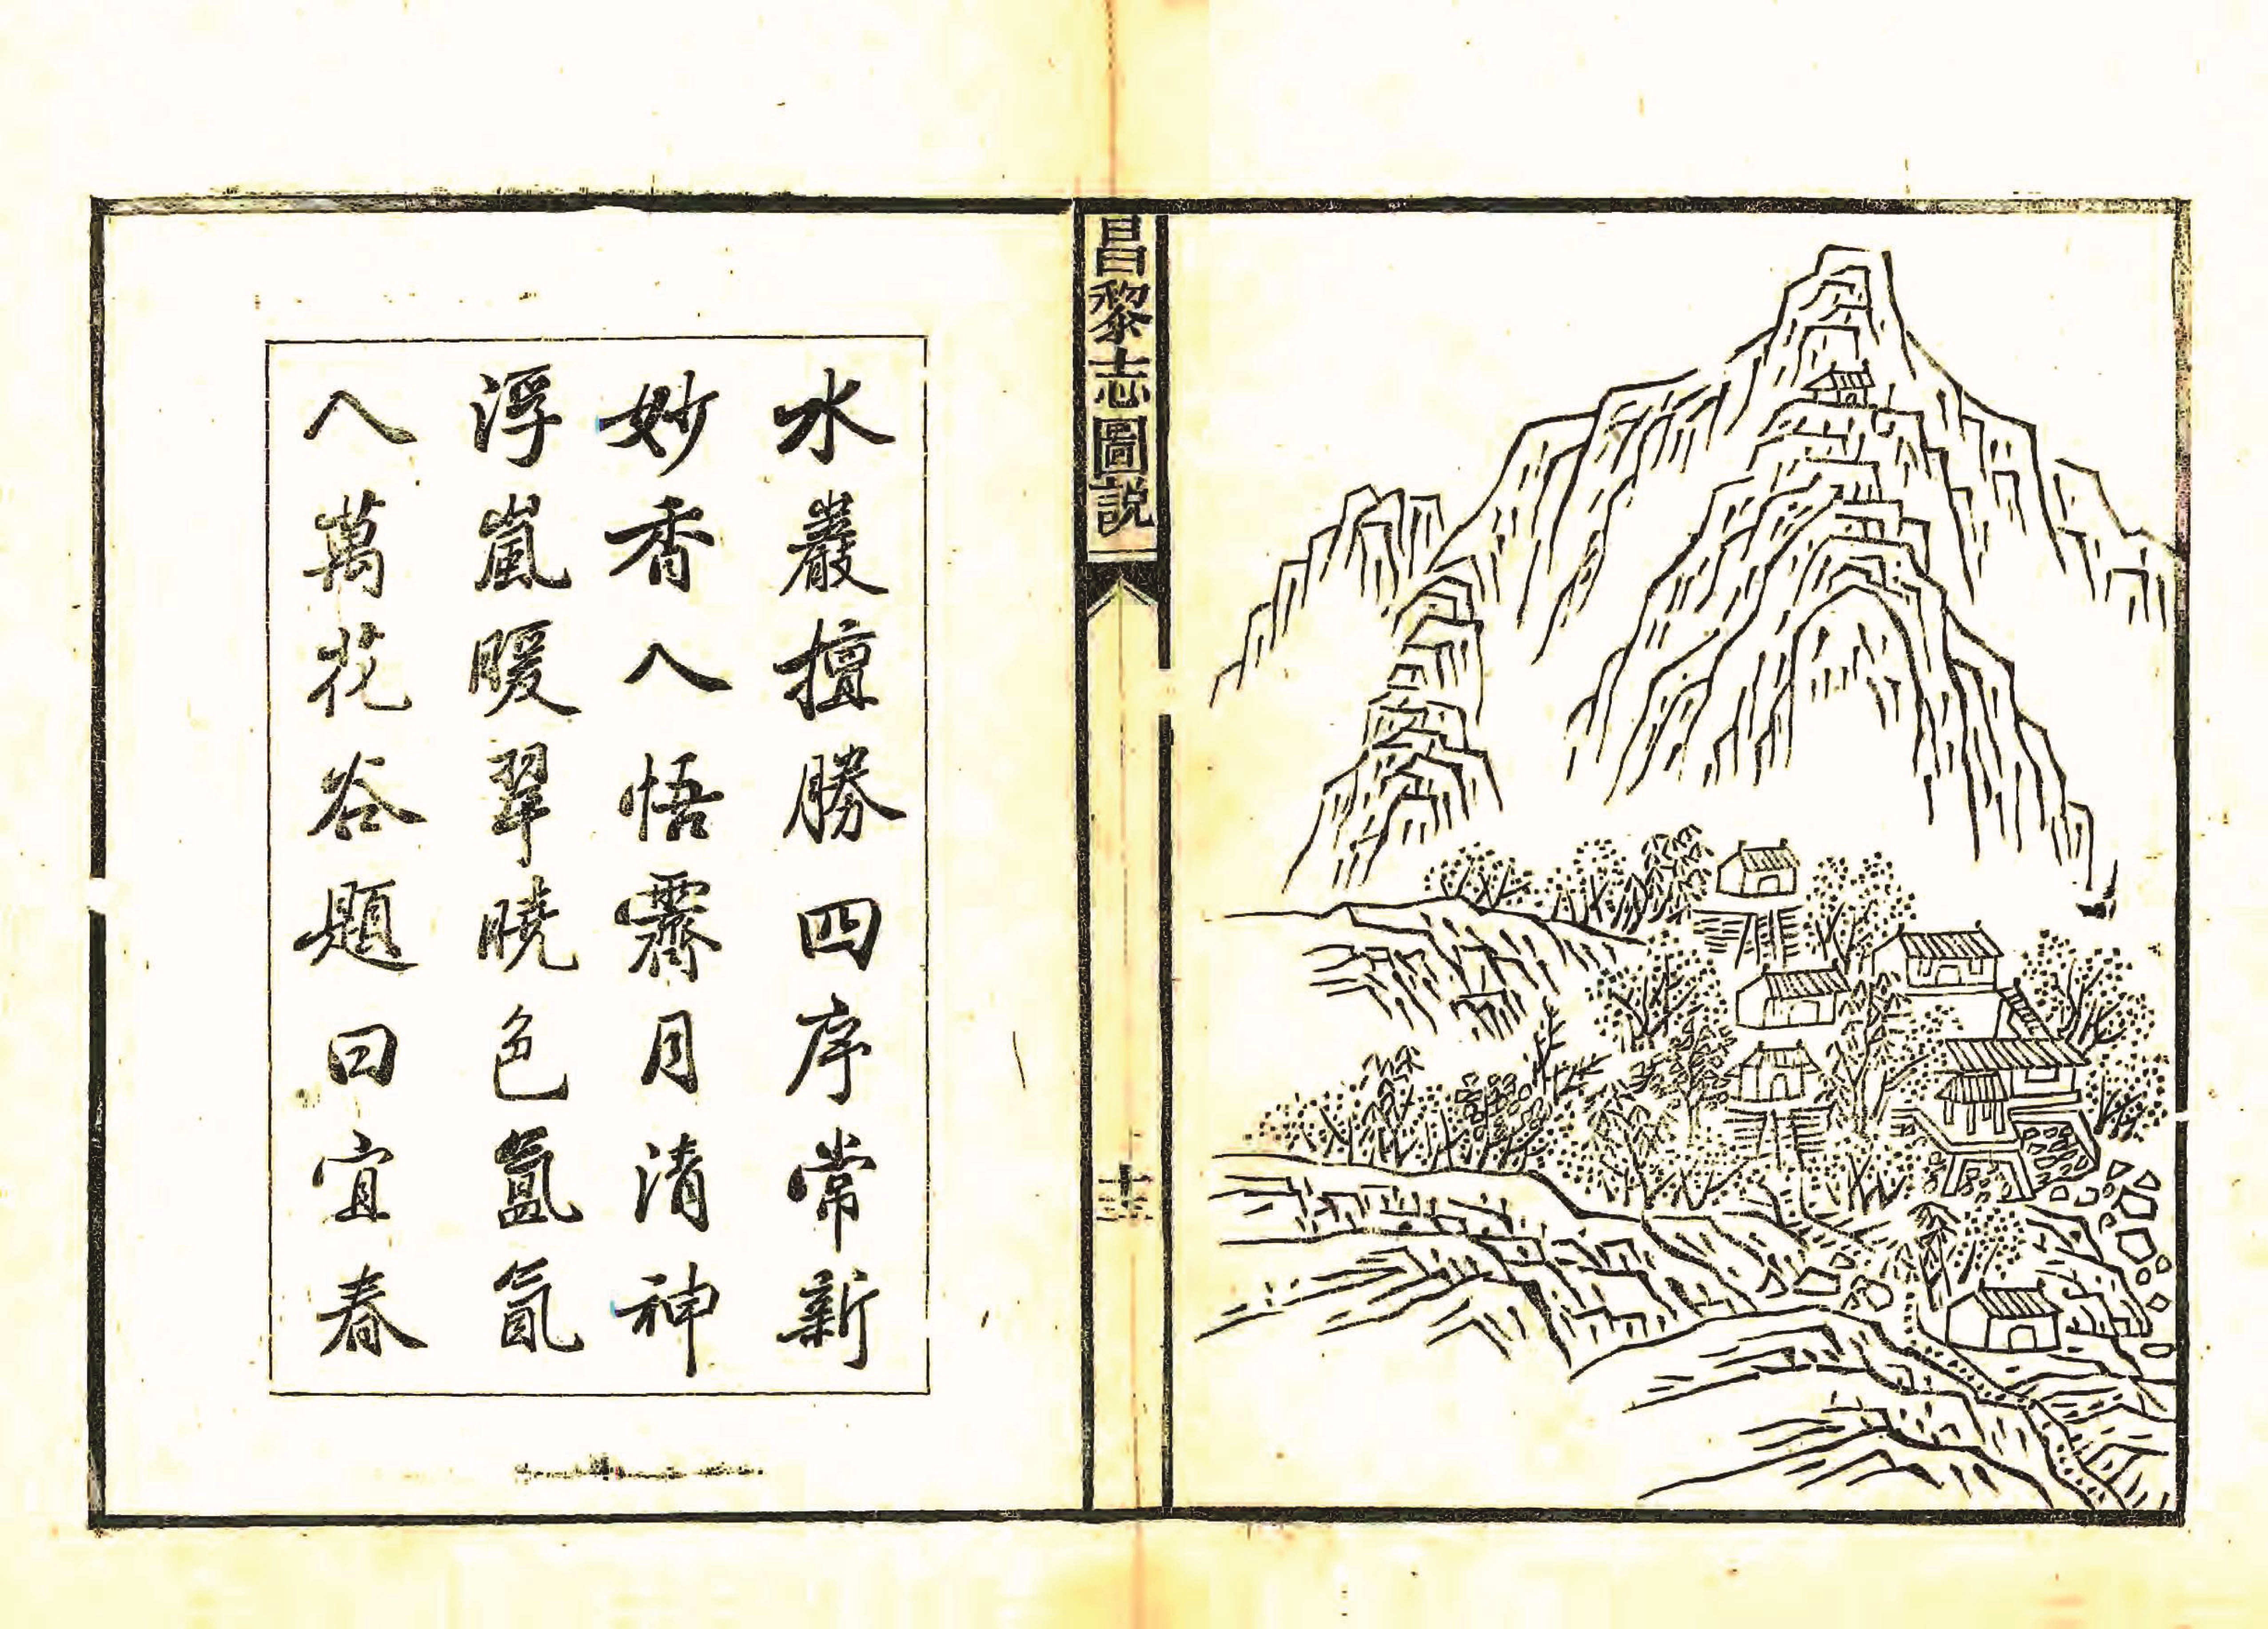 昌黎志圖説
十三
水巖擅勝四序常新
妙香入悟霽月清神
浮嵐暖翠曉色氤氳
入萬花谷題曰宜春